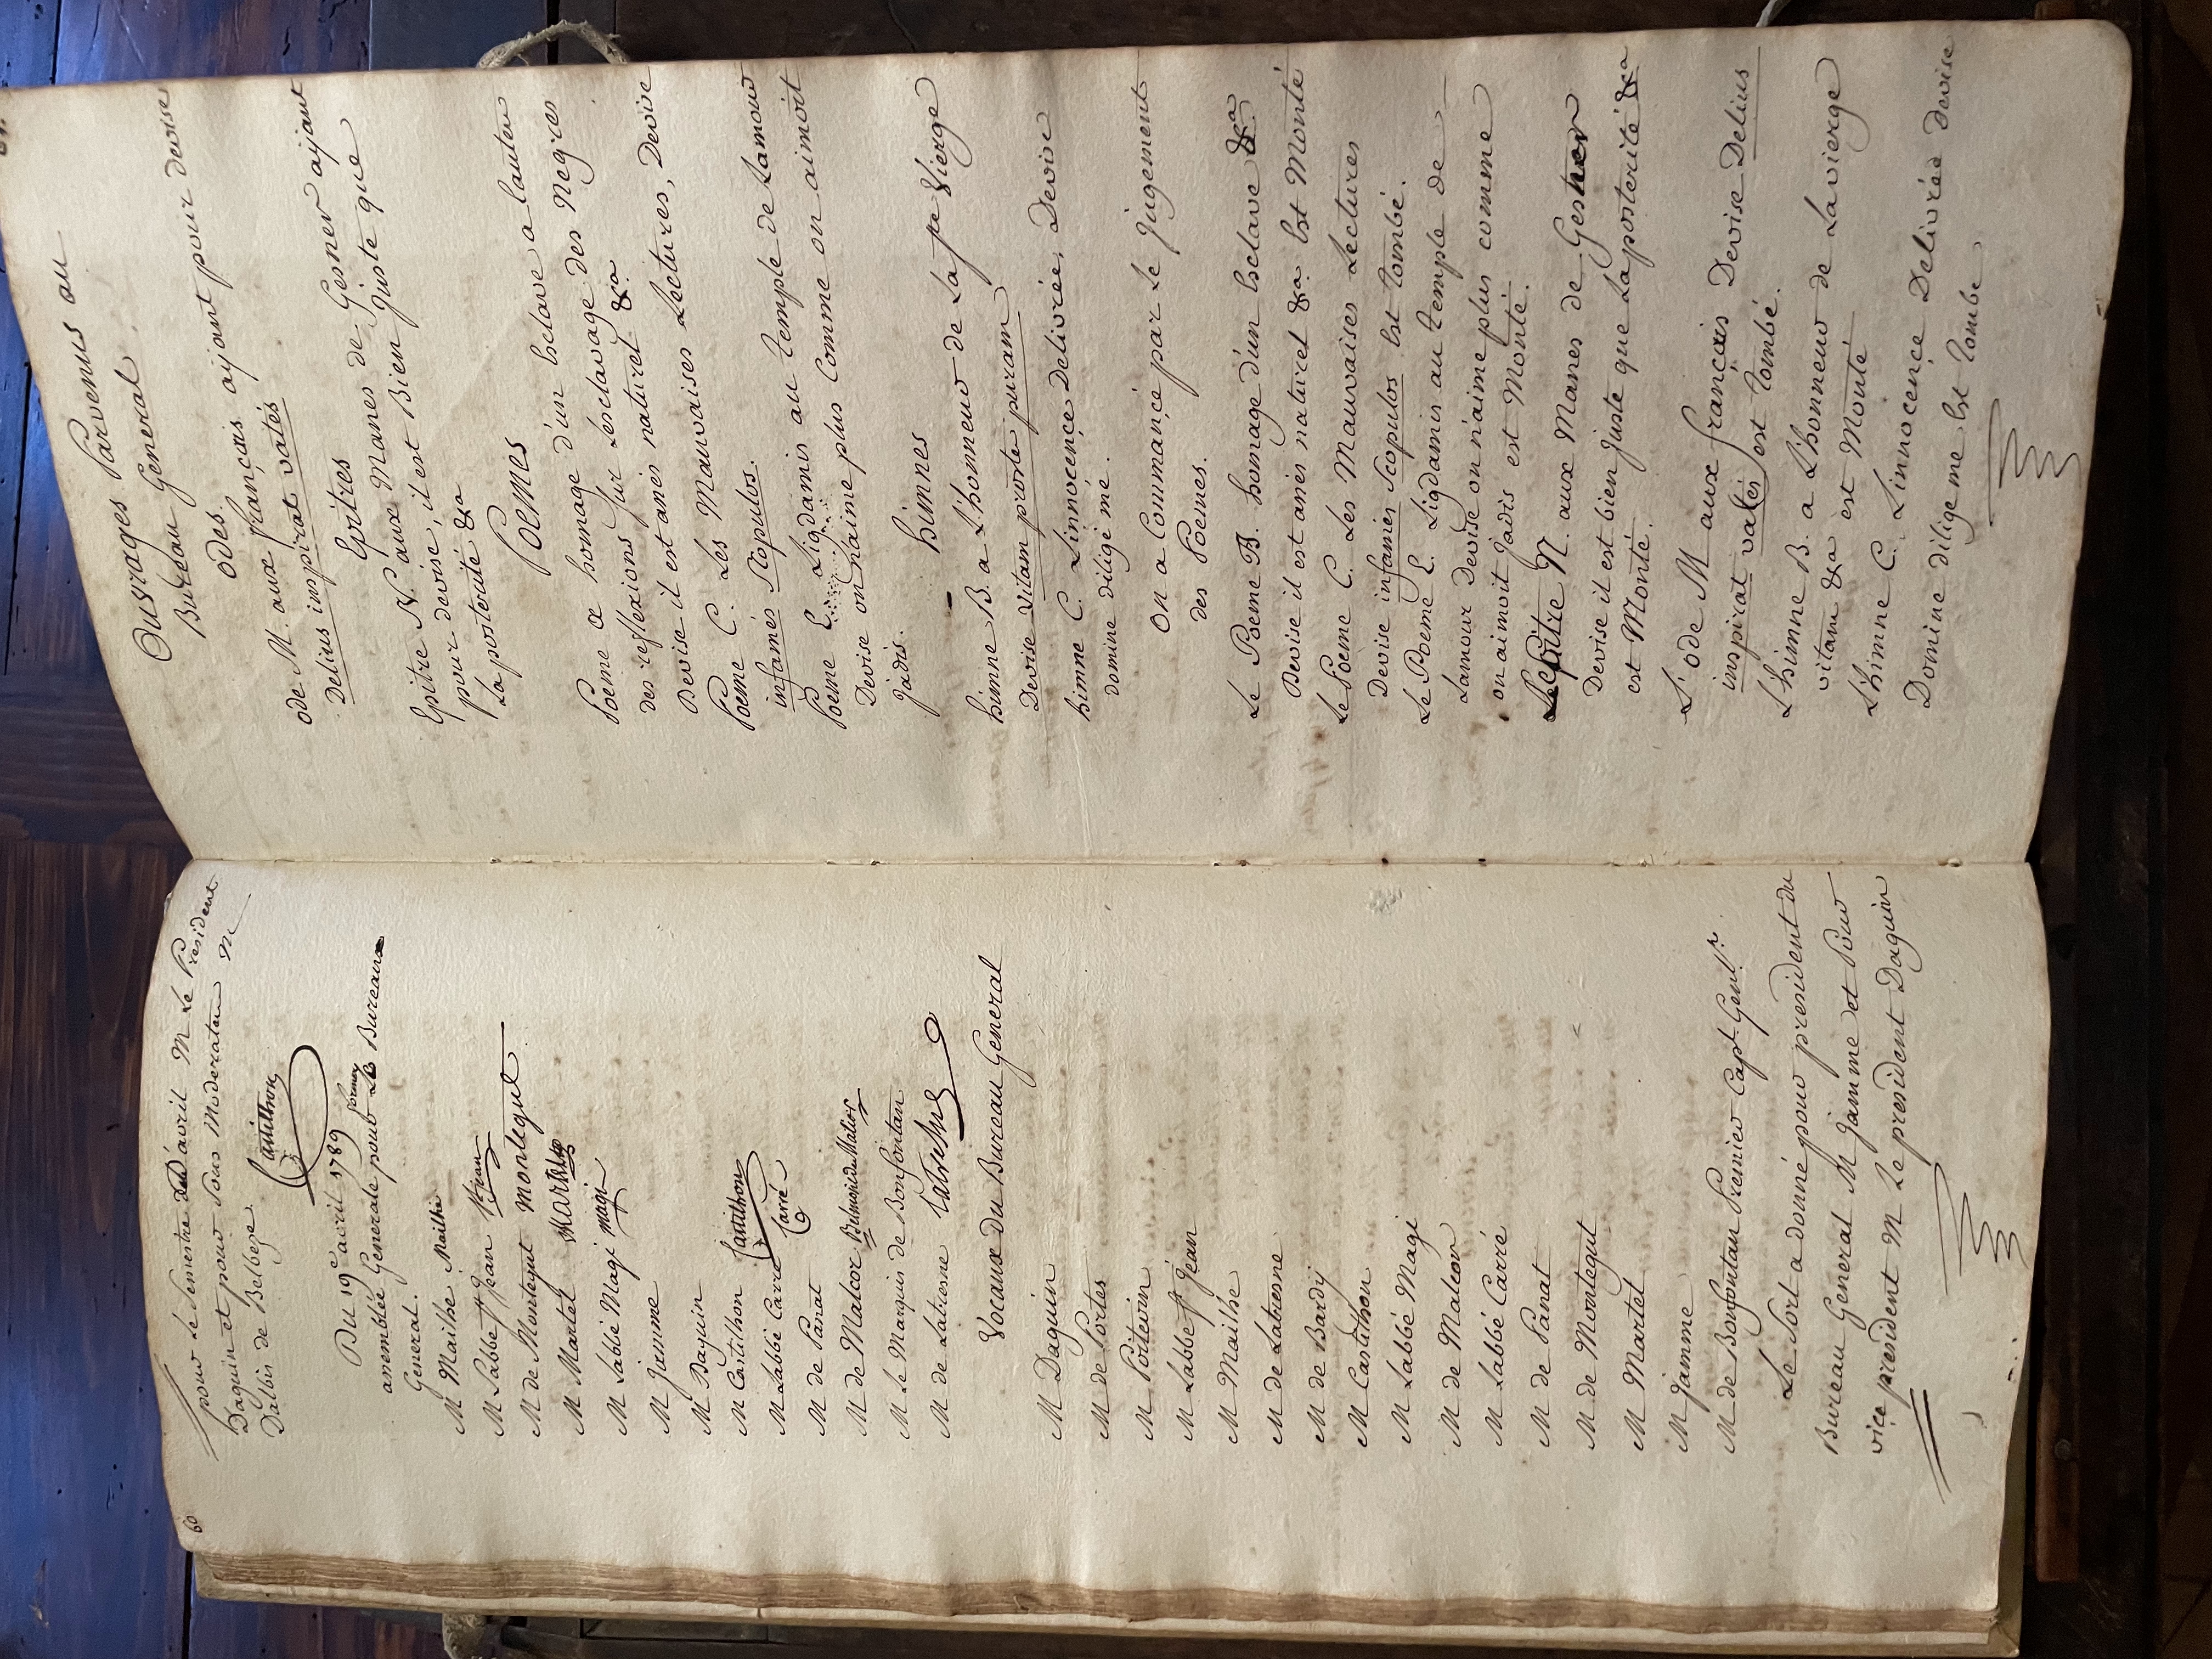 60
pour le Semestre d'avril M Le President
Daquin et pour Sous Moderateur M
Dalbis de Belbeze.
Castilhon
Du 19e avril 1789
assemblée Generale pour former Le Bureaux
General.
M Mailhe Mailhe
M Labbé St Jean St jean
M de Montegut montegut
M Martel Martel
M Labbé Magi magi
M Jamme
M Daquin
M Castilhon Castilhon
M Labbé Carré Carré
M de Panat
M de Malcor Belmond de Malcor
M Le Marquis de Bonfontan
M de Latresne Latresne
Vocaux du Bureau General
M Daquin
M de Portes
M Poitevin
M Labbe st Jean
M Mailhe
M de Latresne
M de Bardy
M Castilhon
M Labbé Magi
M de Malcor
M Labbé Carré
M de Panat
M de Montegut
M Martel
M Jamme
M de Bonfontan Premier Capl. Genl.
Le Sort a donné pour president du
Bureau General M Jamme et Pour
vice president M Le president Daquin
Ouvrages Parvenus au
Bureau General
odes.
ode M. aux français ayant pour devise
Delius inspirat vates
Epitres
Epitre N. aux Manes de Gesner ayant
pour devise, il est Bien juste que
La posterité &a
Poemes
Poeme homage d'un Esclave a lauteur
des reflexions sur Lesclavage des Negres
Devise il est anés naturel &a
Poeme C. Les Mauvaises Lectures, Devise
infames Scopulos.
Poeme E. Ligdamis au temple de Lamour
Devise on naime plus Comme on aimoit
jadis.
himnes
himne B. a L'honneur de La se Vierge
Devise Vitam præsta puram
himne C. Linnocence Delivrée, Devise
domine dilige me.
On a Commancé par Le jugement
des Poemes.
Le Poeme B. homage d'un Esclave &a
Devise il est anés naturel &a. Est Monté
Le Poeme C. Les Mauvaises Lectures
Devise infames Scopulos Est tombé.
Le Poeme E. Ligdamis au temple de
Lamour Devise on n'aime plus comme
on aimoit Jadis est Monté.
Lepitre N. aux Manes de Gesner
Devise il est bien juste que La posterité &a
est Monté.
L'ode M aux français Devise Delius
inspirat vates est tombé.
L'himne B. a L'honneur de La vierge
vitam &a est Monté
L'himne C. L'innocence Delivrée devise
Domine dilige me Est tombé